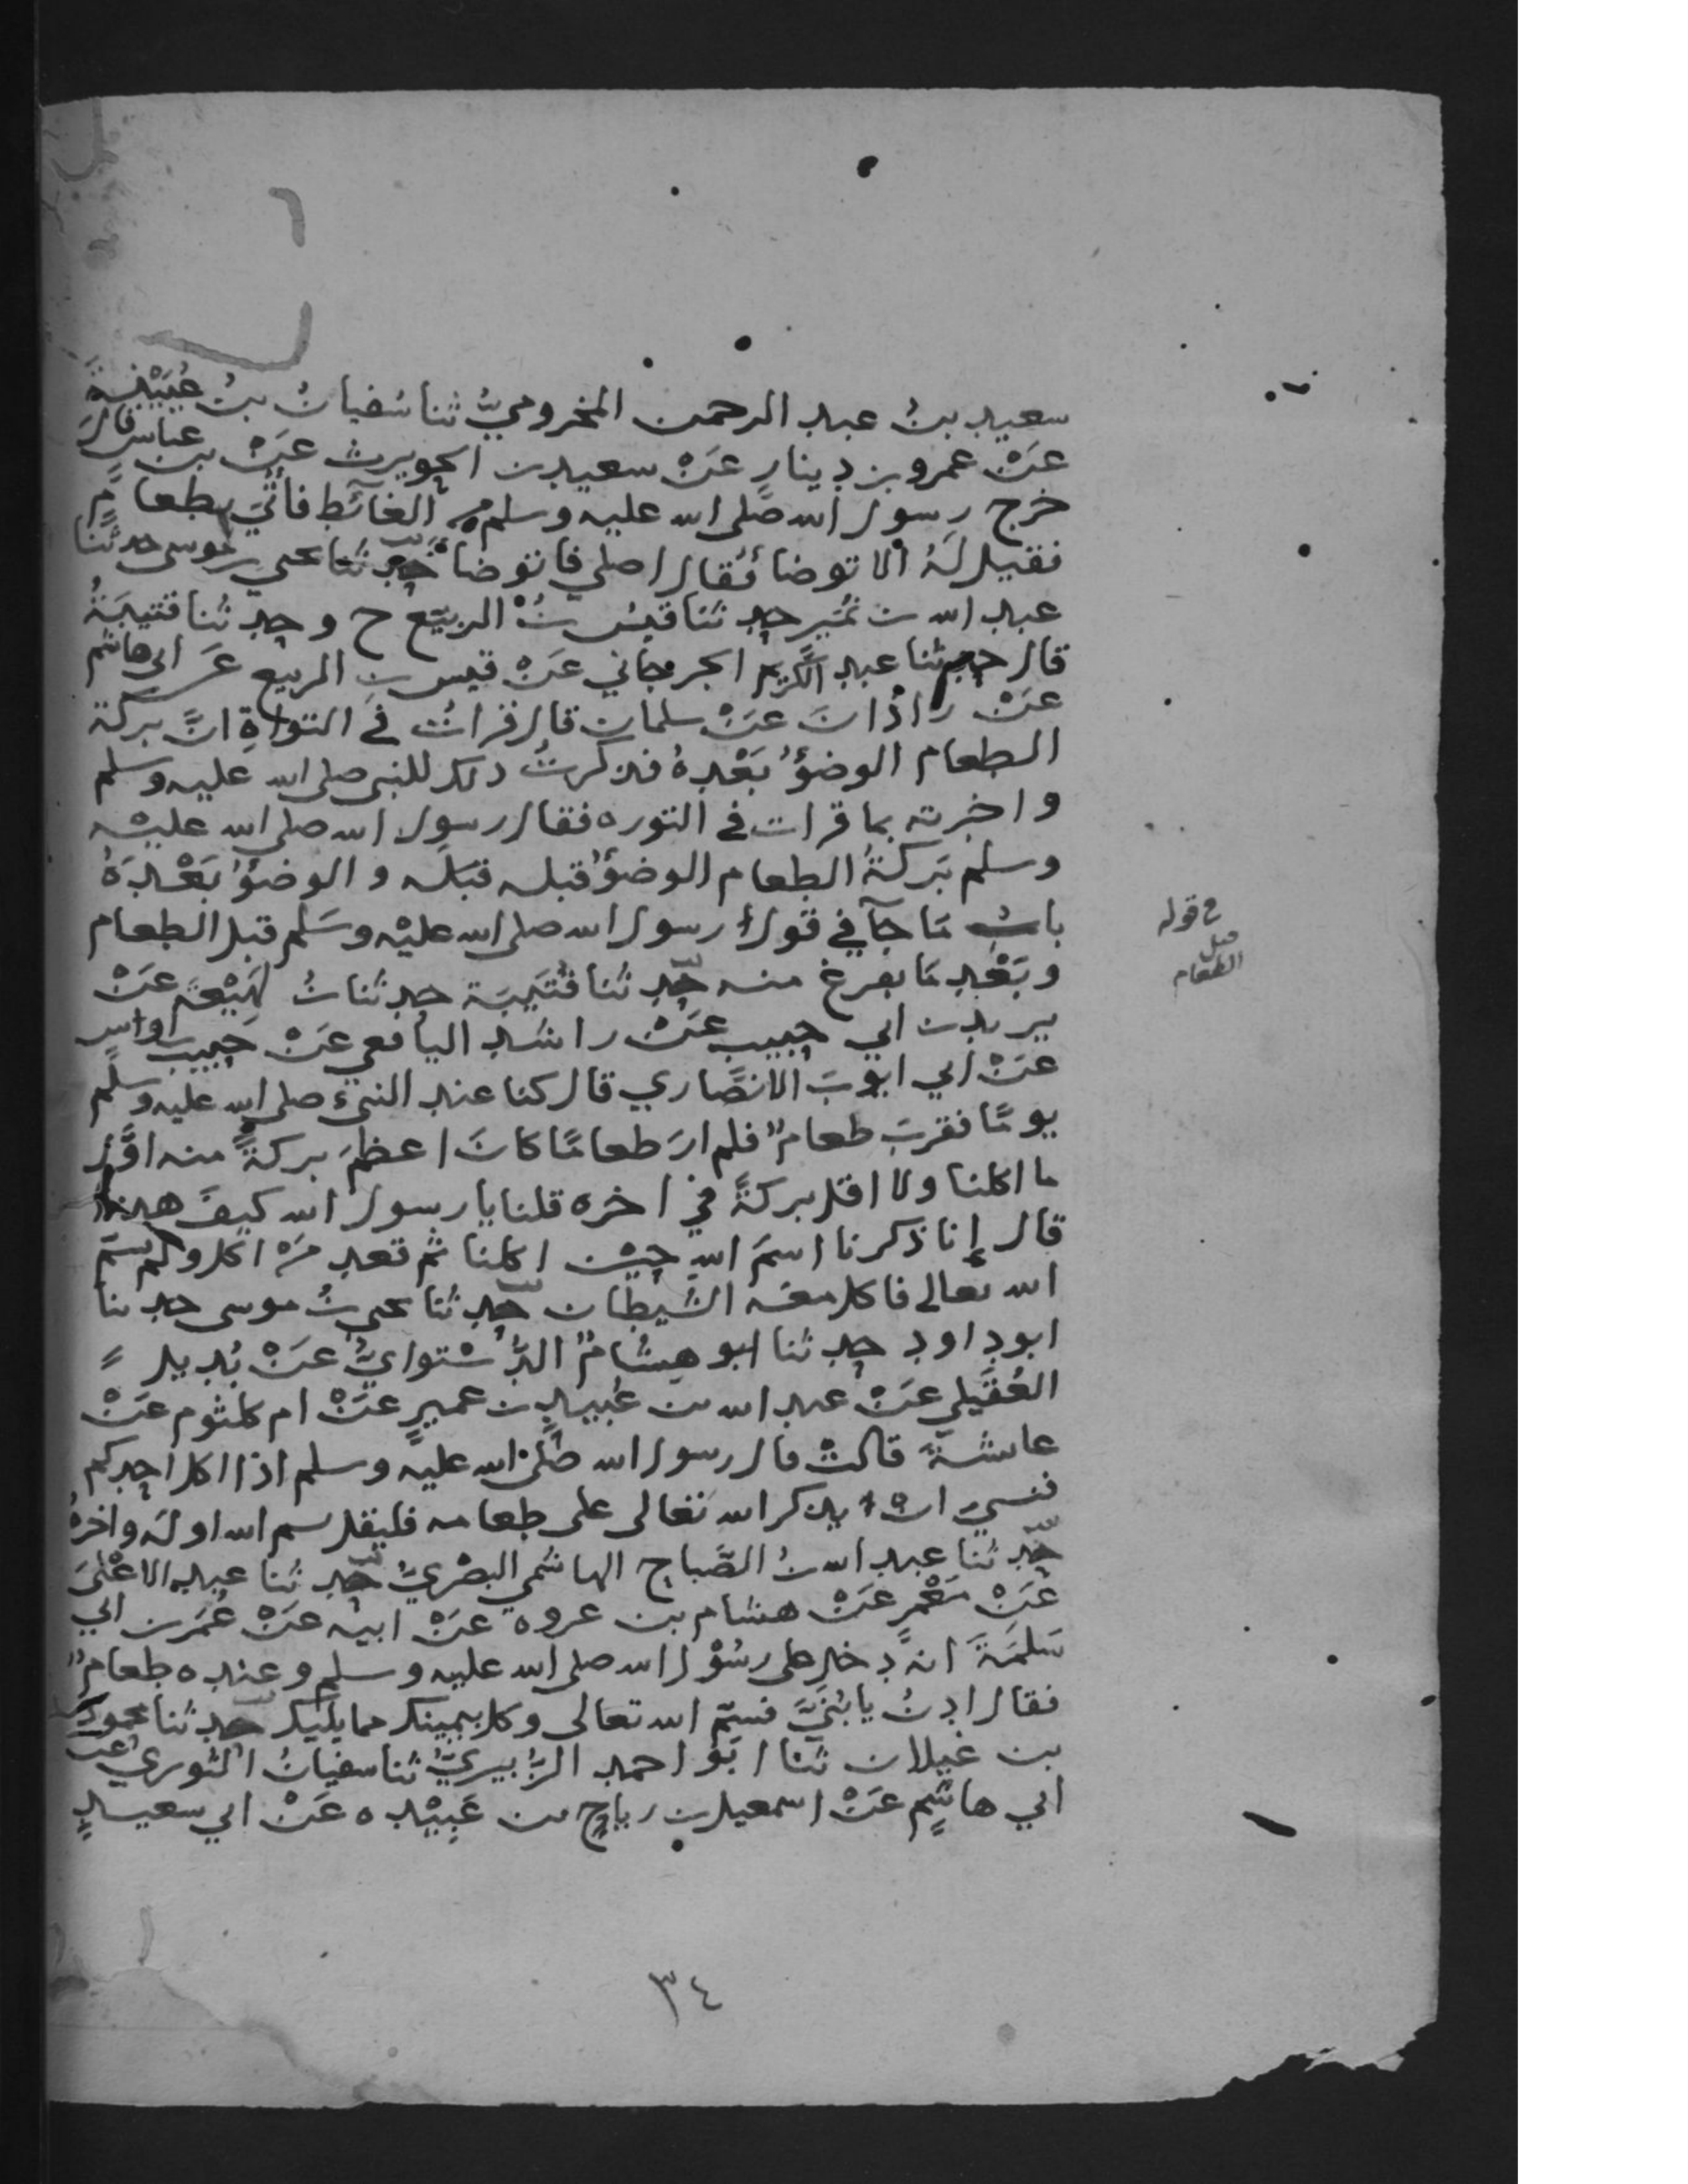 سعيد بنُ عبد الرحمن المخزوميُّ ثنا سُفيانُ بنُ عُيَيْنَةَ
عَنْ عمرو بن دينارٍ عَنْ سعيد بن الحويرث عَنْ بن عباسٍ قالَ
خرج رسول الله صلى الله عليه وسلم من الغائط فأتي بطعامٍ
فقيل لهُ الا توضا فقال اصلي فاتوضا حدثنا يحيى بن موسى حدثنا
عبد الله بن نُمَير حدثنا قيسُ بنُ الربيّع ح وحدثنا قتيبَةُ
قال حدثنا عبد الكريم الجرجاني عَنْ قيس بن الربيع عَن ابي هاشم
عَنْ زاذانَ عَنْ سلمان قال قراتُ في التوراةِ انَّ بركة
الطعام الوضوُ بَعْدهُ فذكرتُ ذلك للنبي صلى الله عليه وسلم
واخبرته بما قرات في التوره فقال رسول الله صلى الله عليه
وسلم بَركةُ الطعام الوضوُ قبله قبلَه والوضوُ بَعْدَهُ
بابُ مَا جآ في قول رسول الله صلى الله عليْه وسَلم قبل الطعام
وبَعْد مَا يفرغ منه حدثنا قُتَيبَة حدثنا بنُ لَهِيْعَة عَنْ
يزيد بن ابي حبيب عَنْ راشد اليافعي عَنْ حَبيب بن اوسٍ
عَنْ ابي ايوبَ الانصَّاري قال كنا عند النبيّ صلى الله عليه وسلم
يومًا فقربَ طعامٌ فلم ارَ طعامًا كانَ اعظمَ بركةً منه اوَّل
ما اكلنا ولا اقل بركةً في اخره قلنا يا رسول الله كيفَ هذا
قال إنا ذكرنا اسمَ اللهِ حِيْن اكلنا ثم قعد مَنْ اكل ولم يُسَمِّ
الله تعالى فاكل معَه الشيطان حدثنا يحيى بنُ موسى حدثنا
ابو داود حدثنا ابو هِشامٌ الدَّسْتوايُّ عَنْ بُديل
العُقَيلي عَنْ عبد الله بن عُبيدِ بن عميرٍ عَنْ ام كلثوم عَنْ
عائشةَ قالتْ قال رسول الله صَلى الله عليْه وسلم اذا اكل احدكم
فنسيَ ان يذكر الله تعالى على طعامه فليقل بسم الله اولَه واخرهُ
حدثنا عبد الله بنُ الصَّباح الهاشمي البصْريُّ حدثنا عبد الاعْلىَ
عَنْ مَعْمرٍ عَنْ هشام بن عروه عَنْ ابيْه عَنْ عُمَر بن ابي
سَلمَةَ انهُ دخل على رسُوْل الله صلى الله عليه وسلم وعنده طعامٌ
فقال ادنُ يا بُنَيَّ فسَمِّ الله تعالى وكل بيمينك مما يليك حدثنا محمود
بن غيلان ثنا ابَو احمد الزُّبيريُّ ثنا سفيانُ الثوري عن
ابي هاشمٍ عَنْ اسمعيل بن رباحٍ بن عَبِيْده عَنْ ابي سعيدٍ
في قوله
قبل
الطعام
٣٤